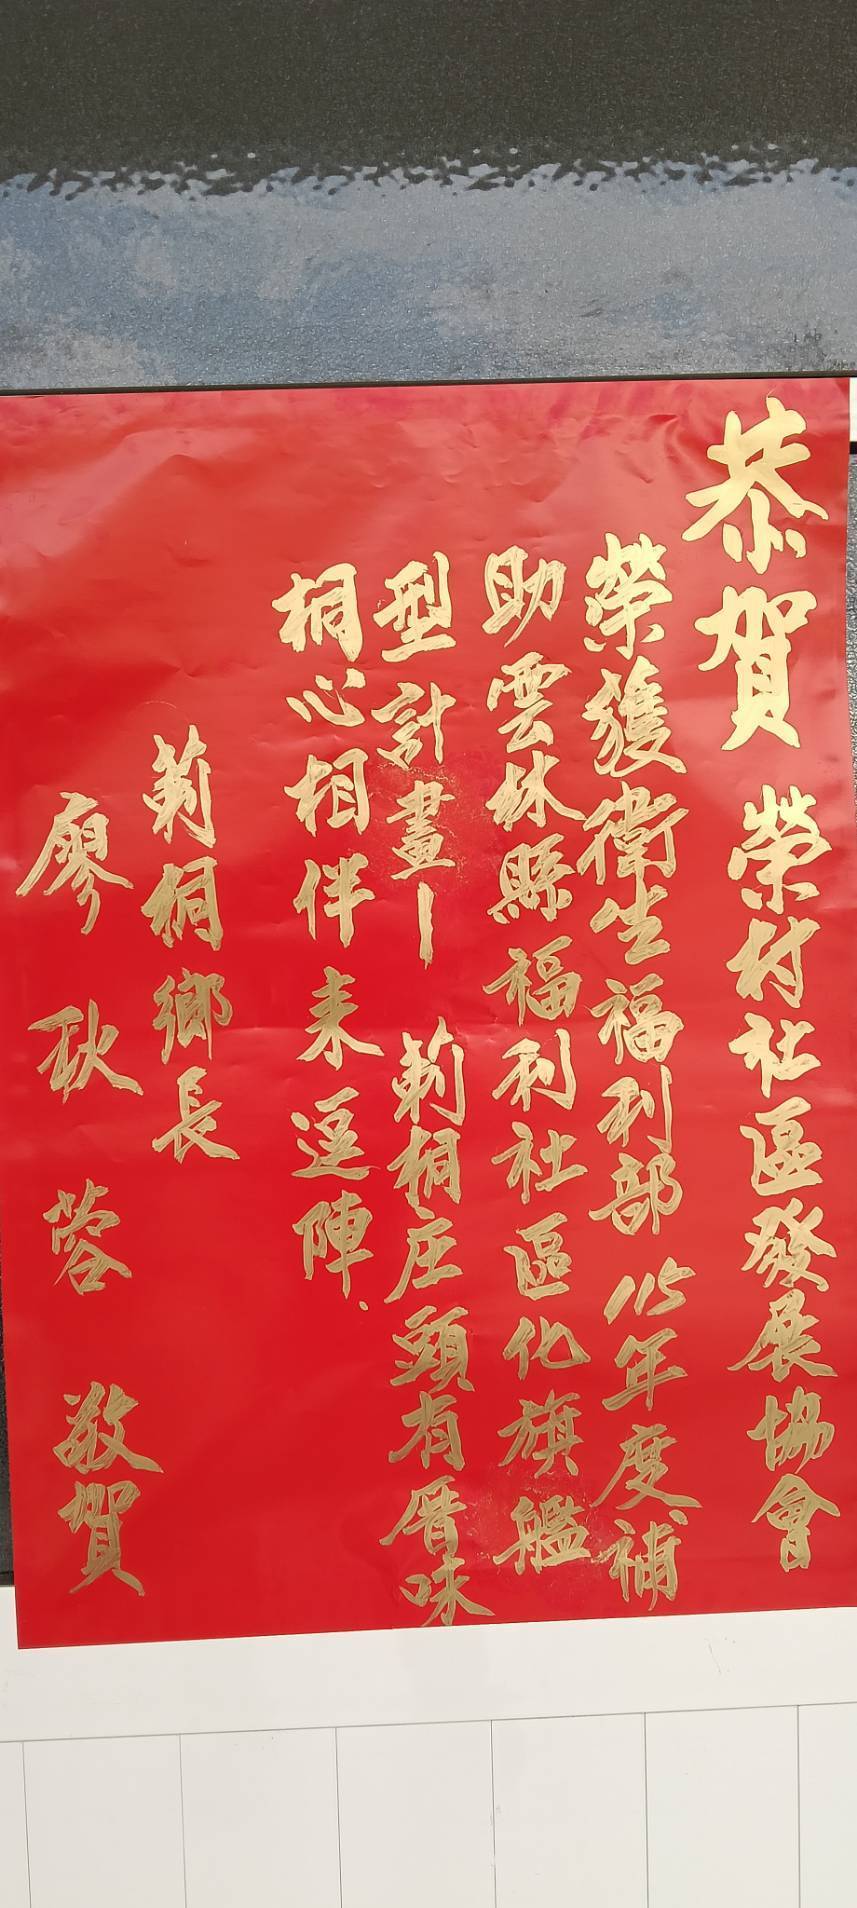 恭賀 榮村社區發展協會
榮獲衛生福利部 115年度補
助雲林縣福利社區化旗艦
型計畫－ 莿桐庄頭有厝味
桐心相伴來逗陣.
莿桐鄉長
廖秋蓉 敬賀